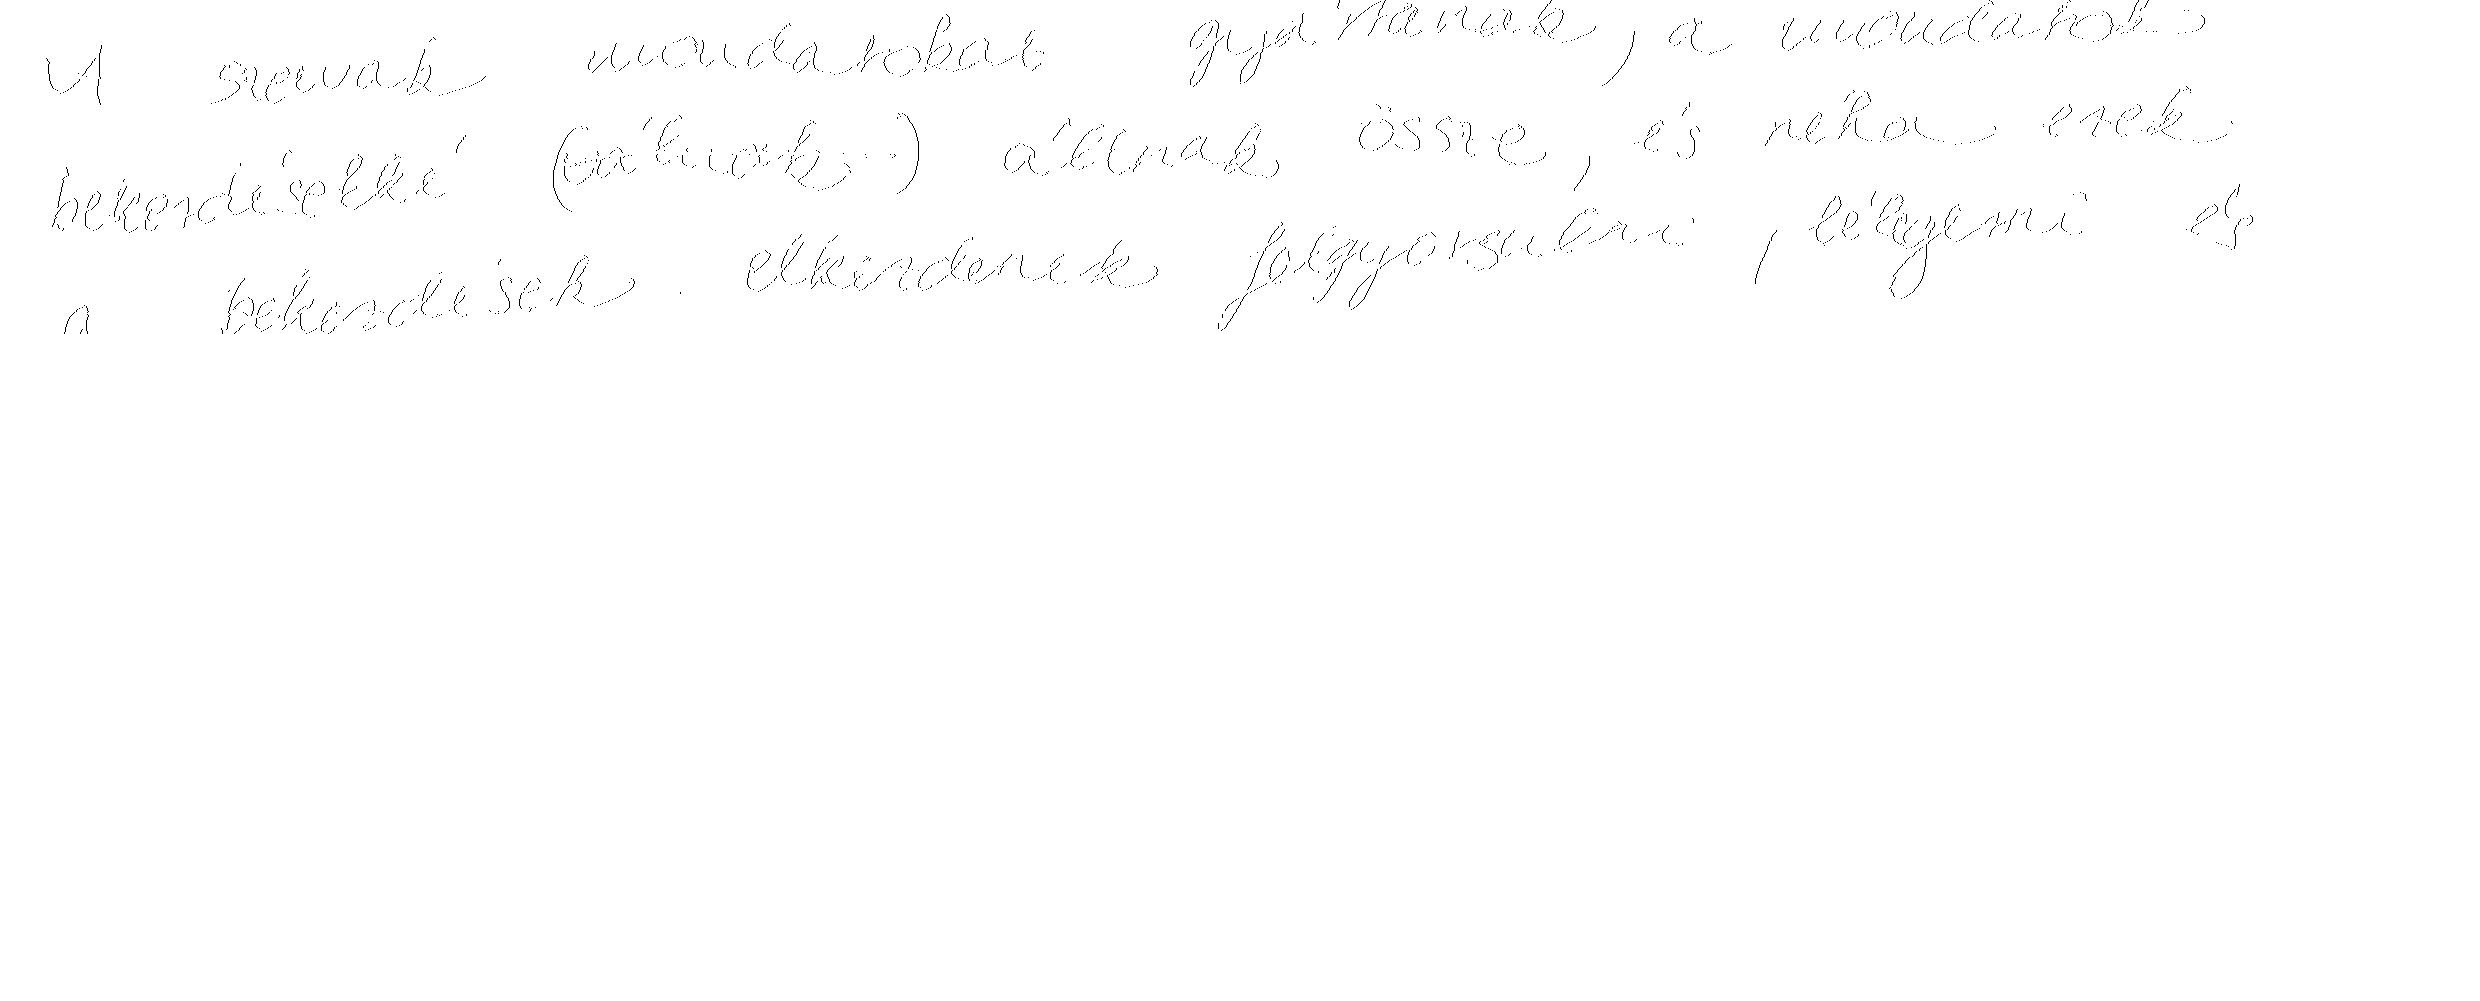 A szavak mondatokat gyártanak, a mondatok
bekezdésekké (válnak) állnak össze, és néha ezek
a bekezdések elkezdenek fölgyorsulni, és